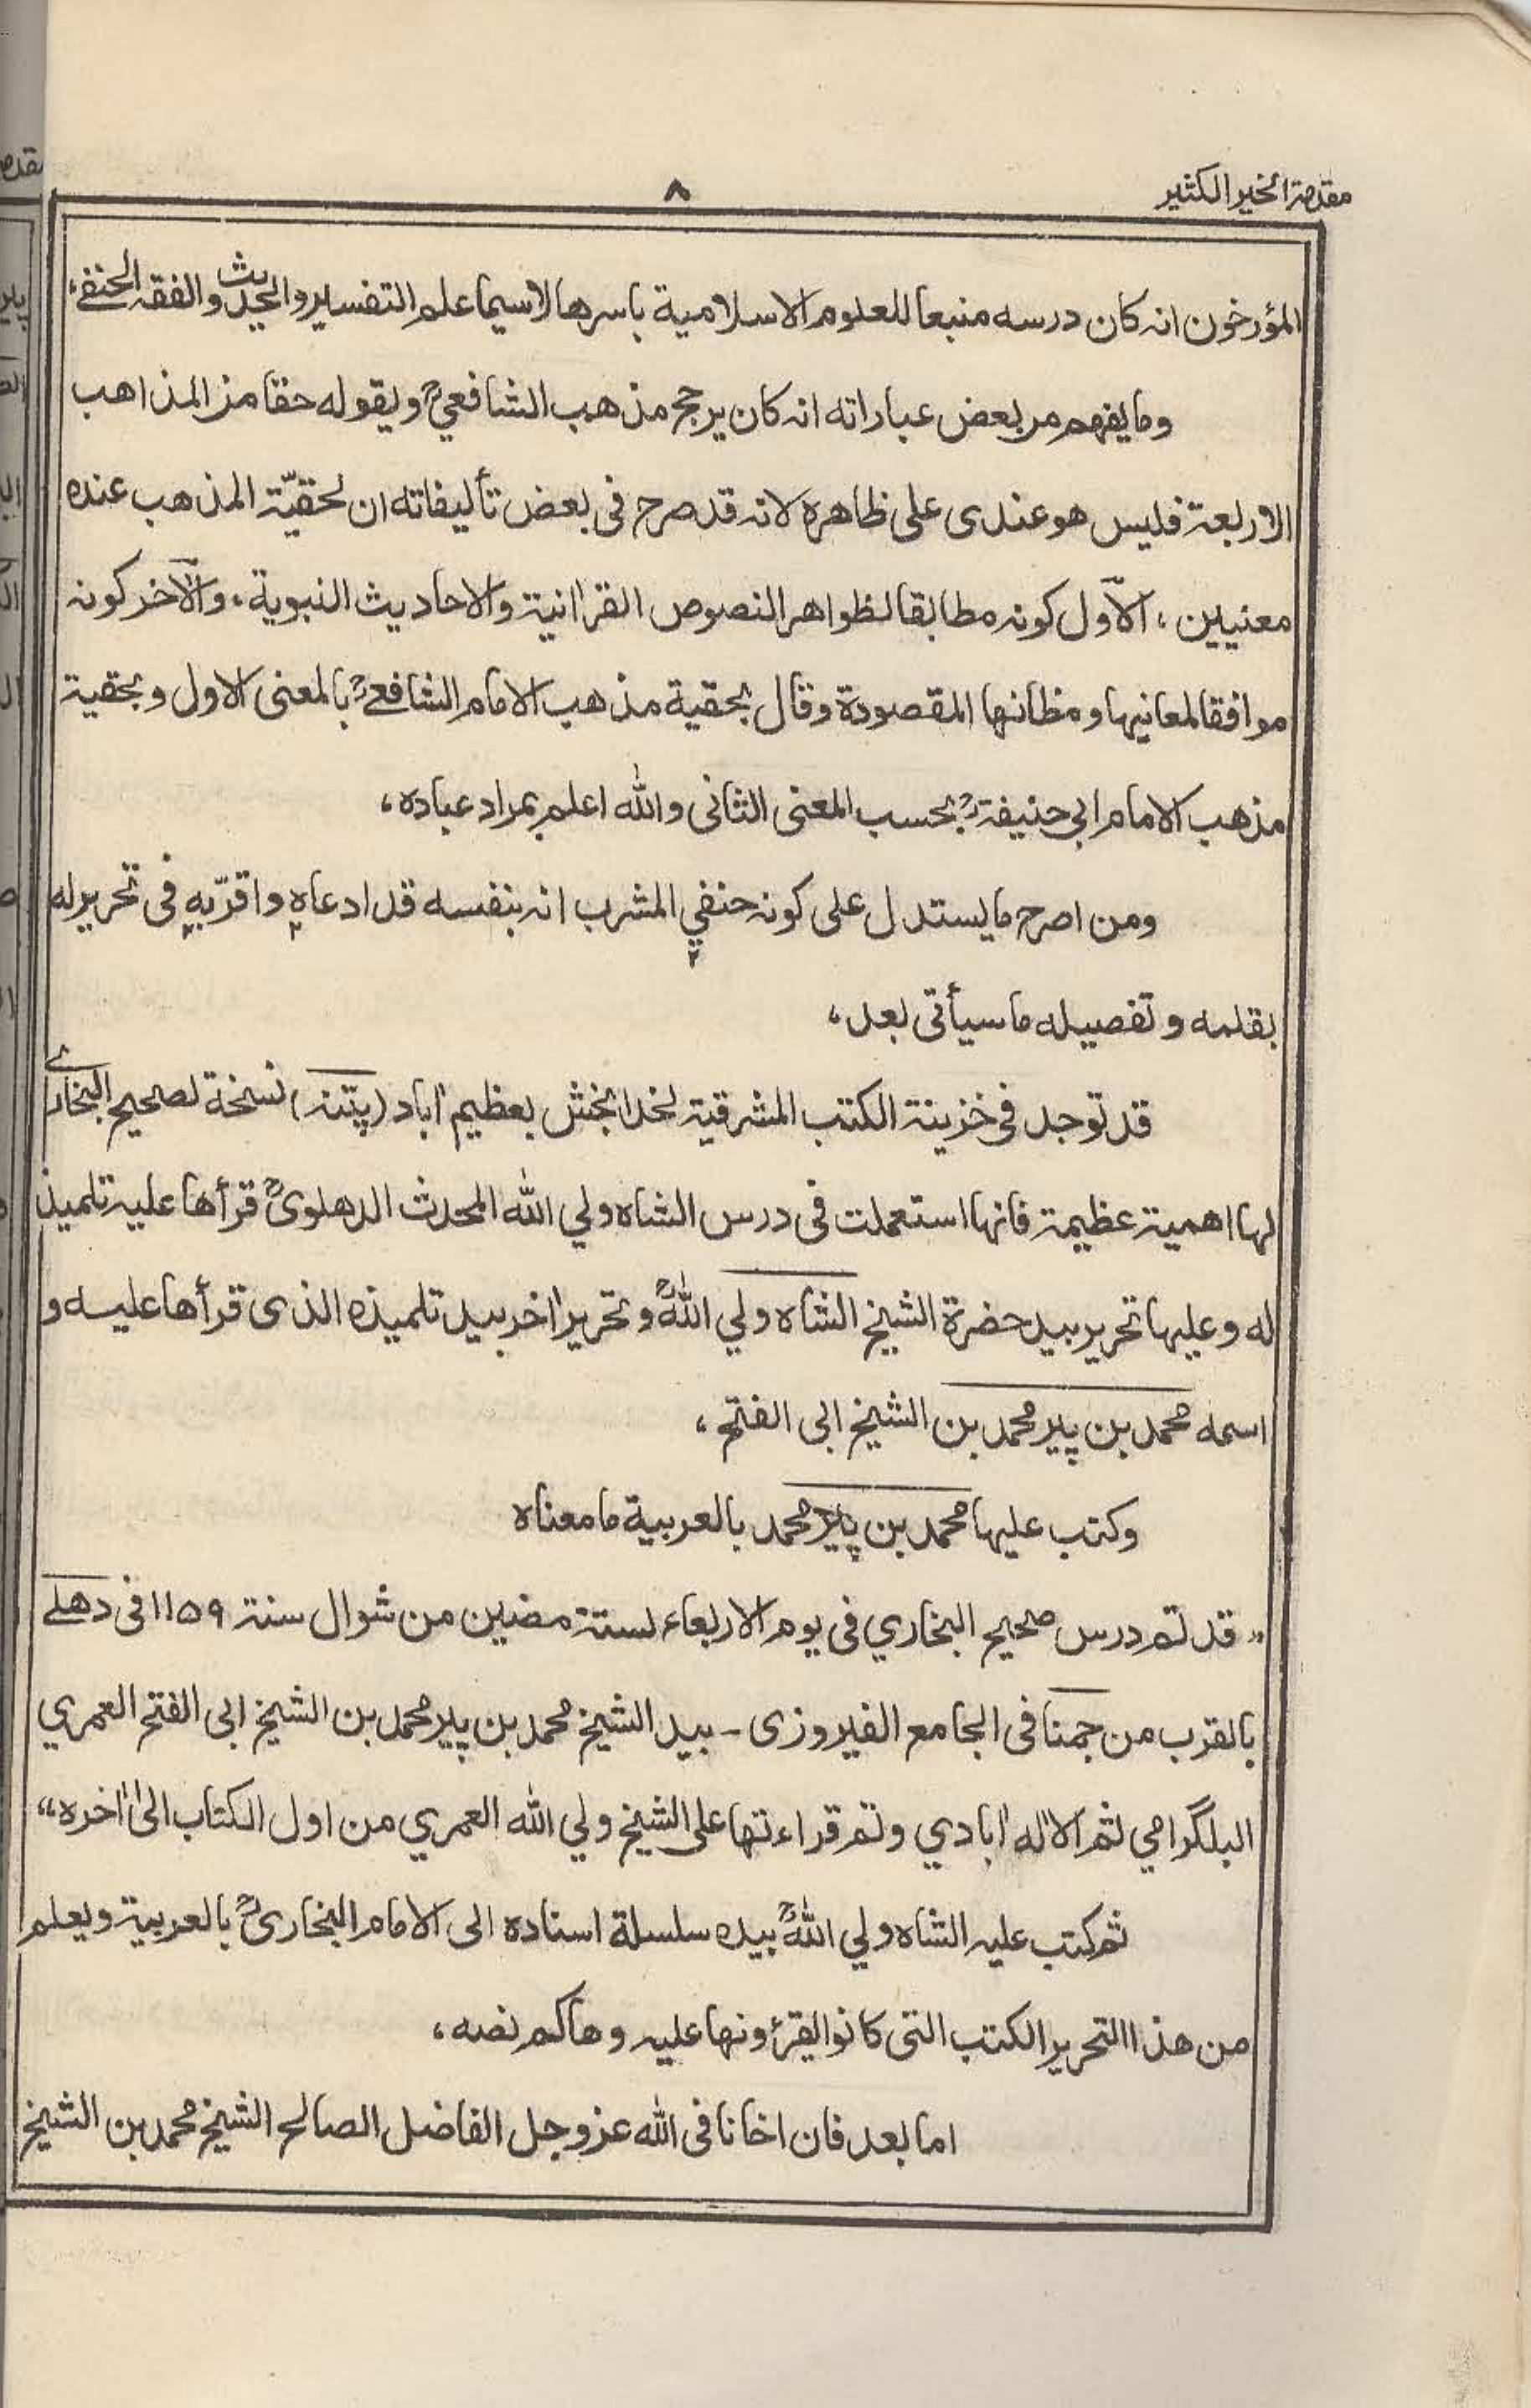 مقدمة الخير الكثير
٨
المؤرخون انہ کان درسه منبعا للعلوم الاسلامية باسرها لاسيما علم التفسير والحديث والفقہ الحنفے،
وما يفهم من بعض عباراته انہ کان يرجح مذهب الشافعيؒ ويقوله حقا من المذاهب
الاربعة فليس هو عندى على ظاهره لانہ قد صرح فى بعض تأليفاته ان لحقيّة المذهب عنده
معنيين، الاّول کونہ مطابقا لظواهر النصوص القراٰنية والاحاديث النبوية، والآخر کونہ
موافقا لمعانيها ومظانها المقصودة وقال بحقية مذهب الامام الشافعےؒ بالمعنى الاول وبحقية
مذهب الامام ابي حنيفةؒ بحسب المعنى الثانى والله اعلم بمراد عباده،
ومن اصرح ما يستدل على کونہ حنفي المشرب انہ بنفسه قد ادعاه واقرّبه فى تحرير له
بقلمه وتفصيله ما سيأتى بعد،
قد توجد فى خزينة الکتب المشرقية لخدا بخش بعظيم اٰباد (پٹنہ) نسخة لصحيح البخارے
لها اهمية عظيمة فانها استعملت فى درس الشاه ولي الله المحدث الدهلوىؒ قرأها عليہ تلميذ
له وعليها تحرير بيد حضرة الشيخ الشاه ولي اللهؒ وتحرير اٰخر بيد تلميذه الذى قرأها عليه و
اسمه محمد بن پير محمد بن الشيخ ابى الفتح،
وکتب عليها محمد بن پير محمد بالعربية ما معناه
״ قد تم درس صحيح البخاري فى يوم الاربعاء لستة مضين من شوال سنة ١١٥٩ فى دهلے
بالقرب من جمنا فى الجامع الفيروزى - بيد الشيخ محمد بن پير محمد بن الشيخ ابى الفتح العمري
البلگرامي ثم الاٰله اٰبادي وتم قراءتها على الشيخ ولي الله العمري من اول الکتاب الىٰ اٰخره“
ثم کتب عليہ الشاه ولي اللهؒ بيده سلسلة اسناده الى الامام البخارىؒ بالعربية ويعلم
من هذا التحرير الکتب التى کانوا يقرؤونها عليہ وهاکم نصه،
اما بعد فان اخانا فى الله عز وجل الفاضل الصالح الشيخ محمد بن الشيخ